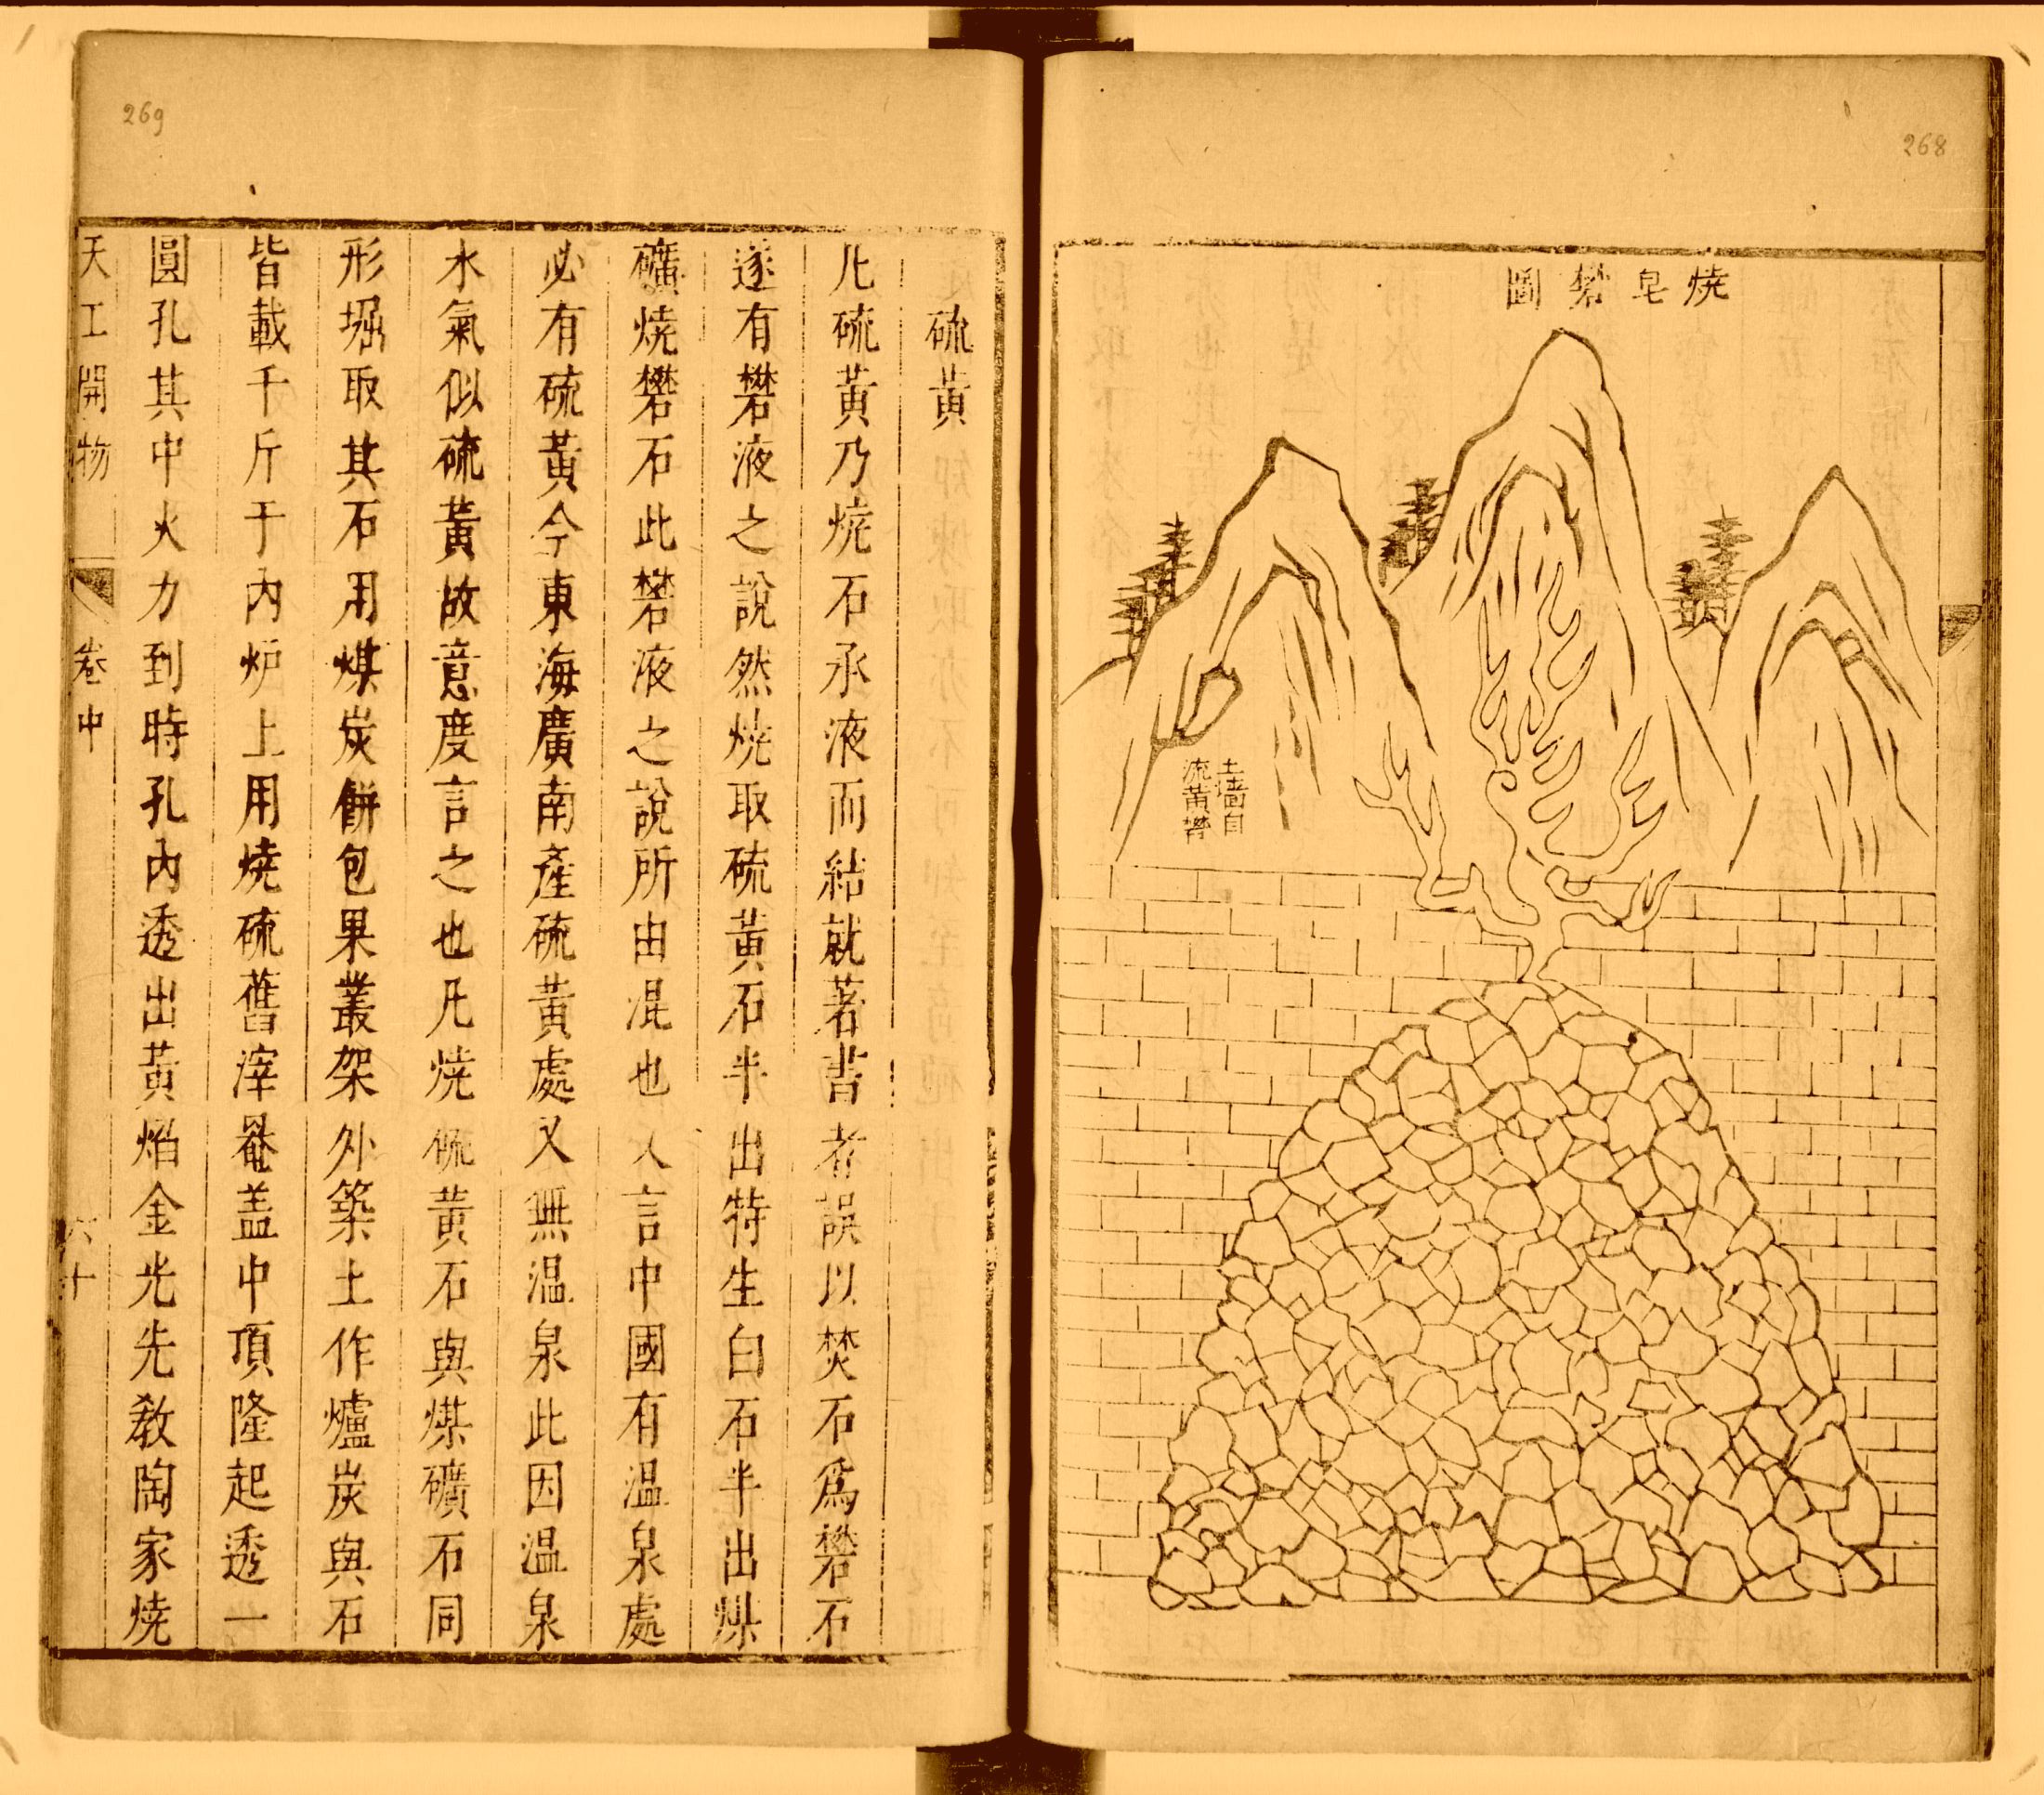 268
燒皂礬圖
土墻自
流黃礬
269
硫黃
凡硫黃乃燒石承液而結就著書者誤以焚石爲礬石
遂有礬液之說然燒取硫黃石半出特生白石半出煤
礦燒礬石此礬液之說所由混也又言中國有温泉處
必有硫黃今東海廣南產硫黃處又無温泉此因温泉
水氣似硫黃故意度言之也凡燒硫黃石與煤礦石同
形掘取其石用煤炭餅包果叢架外築土作爐炭與石
皆載千斤于內炉上用燒硫舊滓罨盖中頂隆起透一
圓孔其中火力到時孔內透出黃焰金光先敎陶家燒
天工開物 卷中 六十